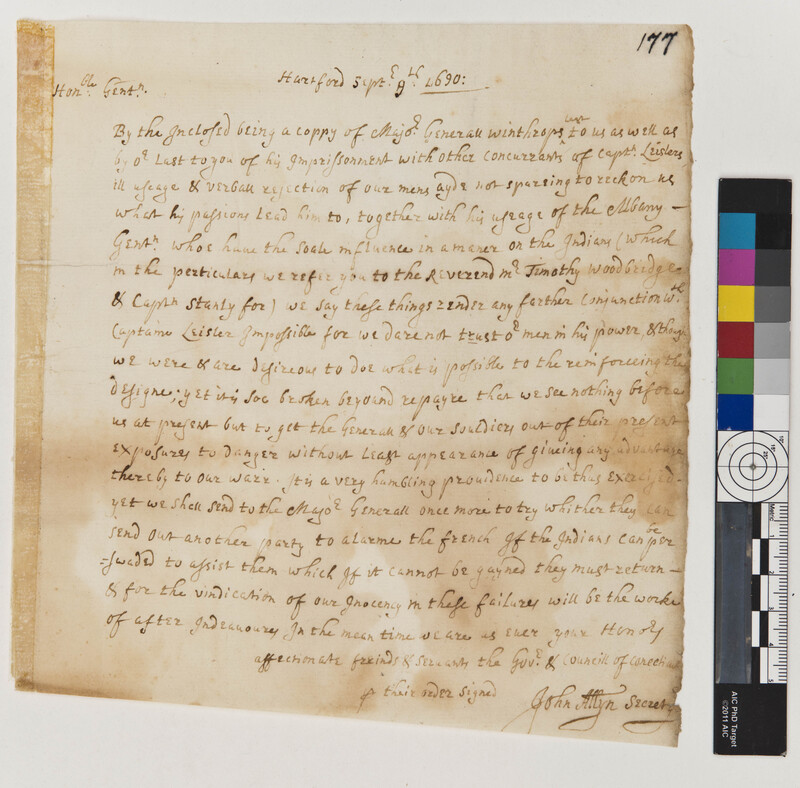 177
Hartford Septr 9th 1690:
Honble Gentn.
By the Inclosed being a coppy of Major Generall winthrops last to us as well as
by or Last to you of his Imprissonment with other concurrants of Captn Leislers
ill useage & verball rejection of our mens ayde not spareing to reckon us
what his passions Lead him to, together with his useage of the Albany -
Gentn whoe haue the Soale influence in a maner on the Indians (which
in the perticulars we refer you to the Reverend mr Timothy Woodbridge
& Captn Stanly for) we say these things render any farther Conjunction wth
Captaine Leisler Impossible for we dare not trust or men in his power, & though
we were & are desireous to doe what is possible to the reinforceing the
designe; yet it is soe broken beyound repayre that we see nothing before
us at present but to get the Generall & our Souldiers out of their present
exposures to danger without Least appearance of giueing any aduantage
thereby to our warr. It is a very humbling prouidence to be thus exercised -
yet we shall send to the Major Generall once more to try whither they can
send out another party to alarme the french If the Indians can be per
=swaded to assist them which If it cannot be gayned they must return -
& for the vindication of our Inocency in these failures will be the worke
of after Indeauoures In the mean time we are as euer your Honors
affectionate freinds & Servants the Govr & Councill of Conecticut
p their order Signed
John Allyn Secretry
AIC PhD Target
©2011 AIC
Metric
1
2
3
4
5